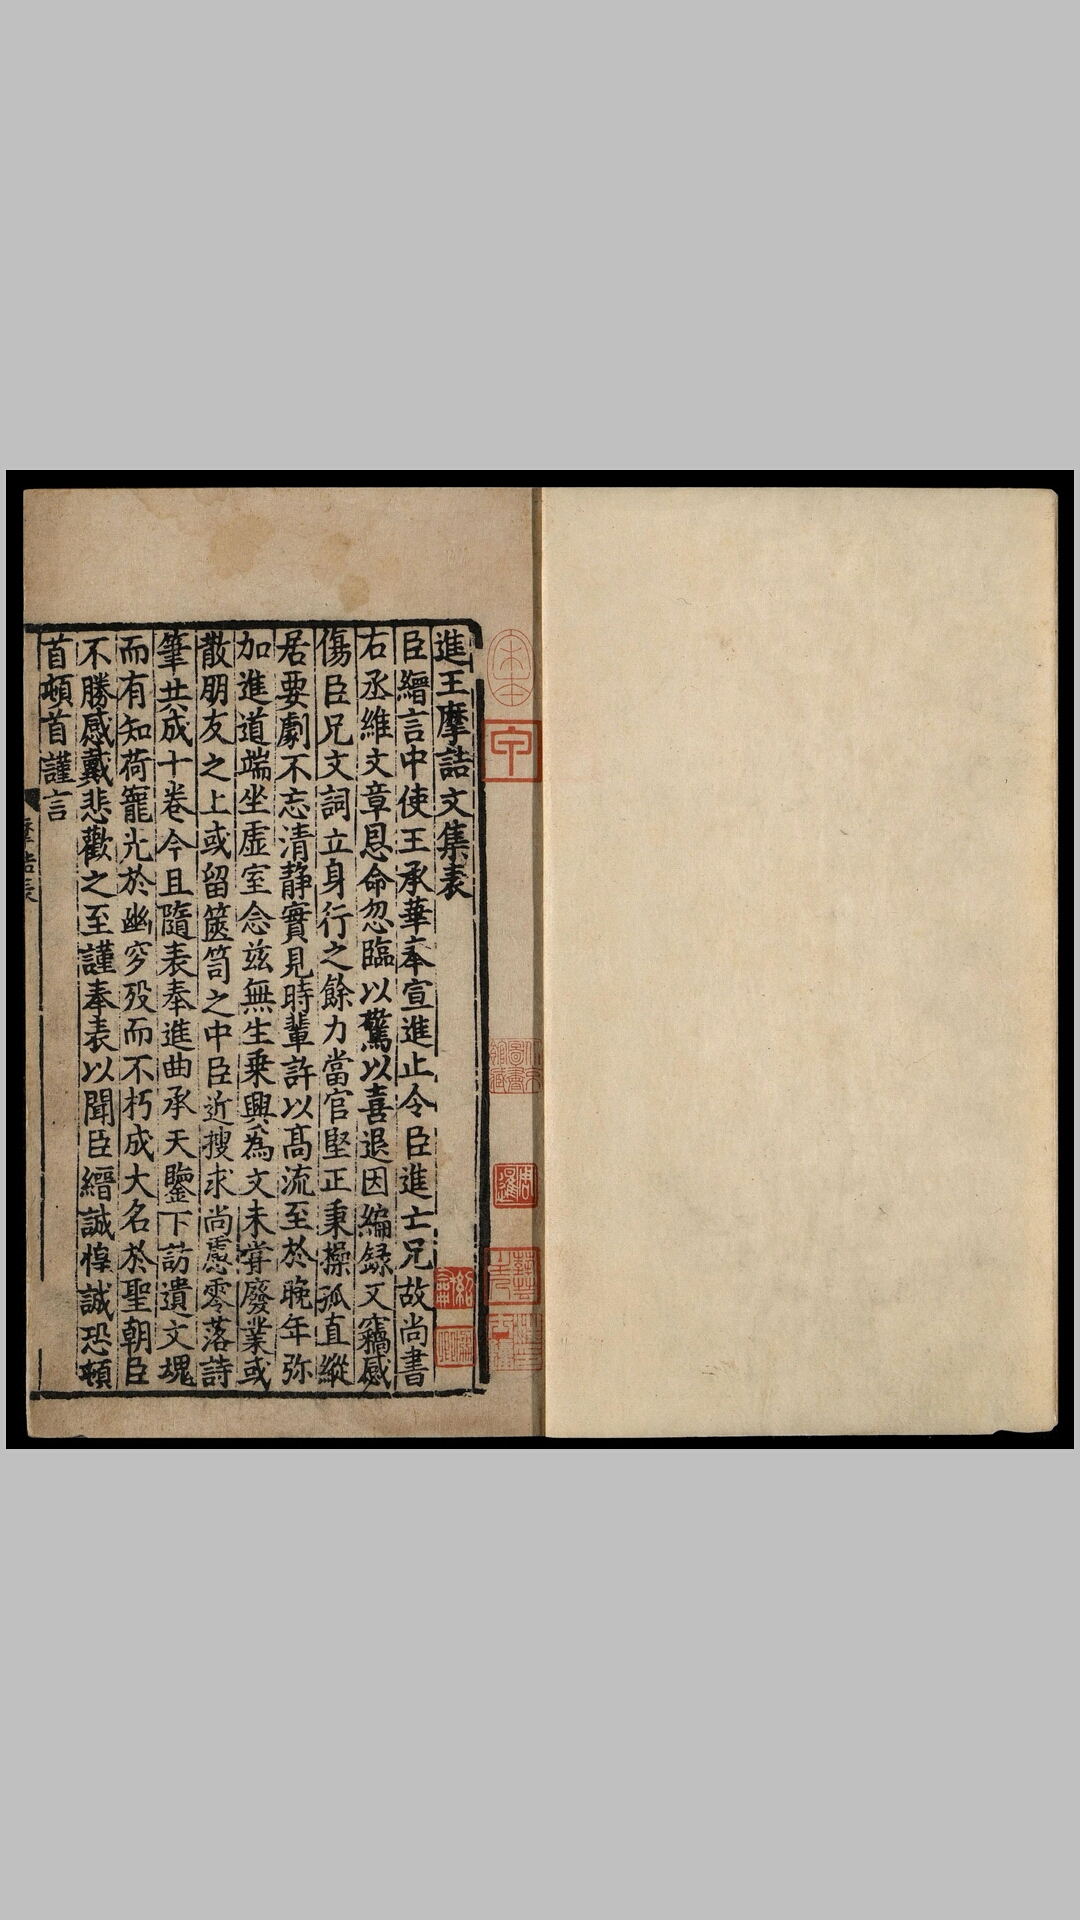 進王摩詰文集表
臣縉言中使王承華奉宣進止令臣進亡兄故尚書
右丞維文章恩命忽臨以驚以喜退因編録又竊感
傷臣兄文詞立身行之餘力當官堅正秉操孤直縱
居要劇不忘清靜實見時輩許以高流至於晚年弥
加進道端坐虛室念茲無生乗興為文未甞廢業或
散朋友之上或留篋笥之中臣近搜求尚慮零落詩
筆共成十卷今且隨表奉進曲承天鑒下訪遺文魂
而有知荷寵光於幽穸歿而不朽成大名於聖朝臣
不勝感戴悲歡之至謹奉表以聞臣縉誠惶誠恐頓
首頓首謹言